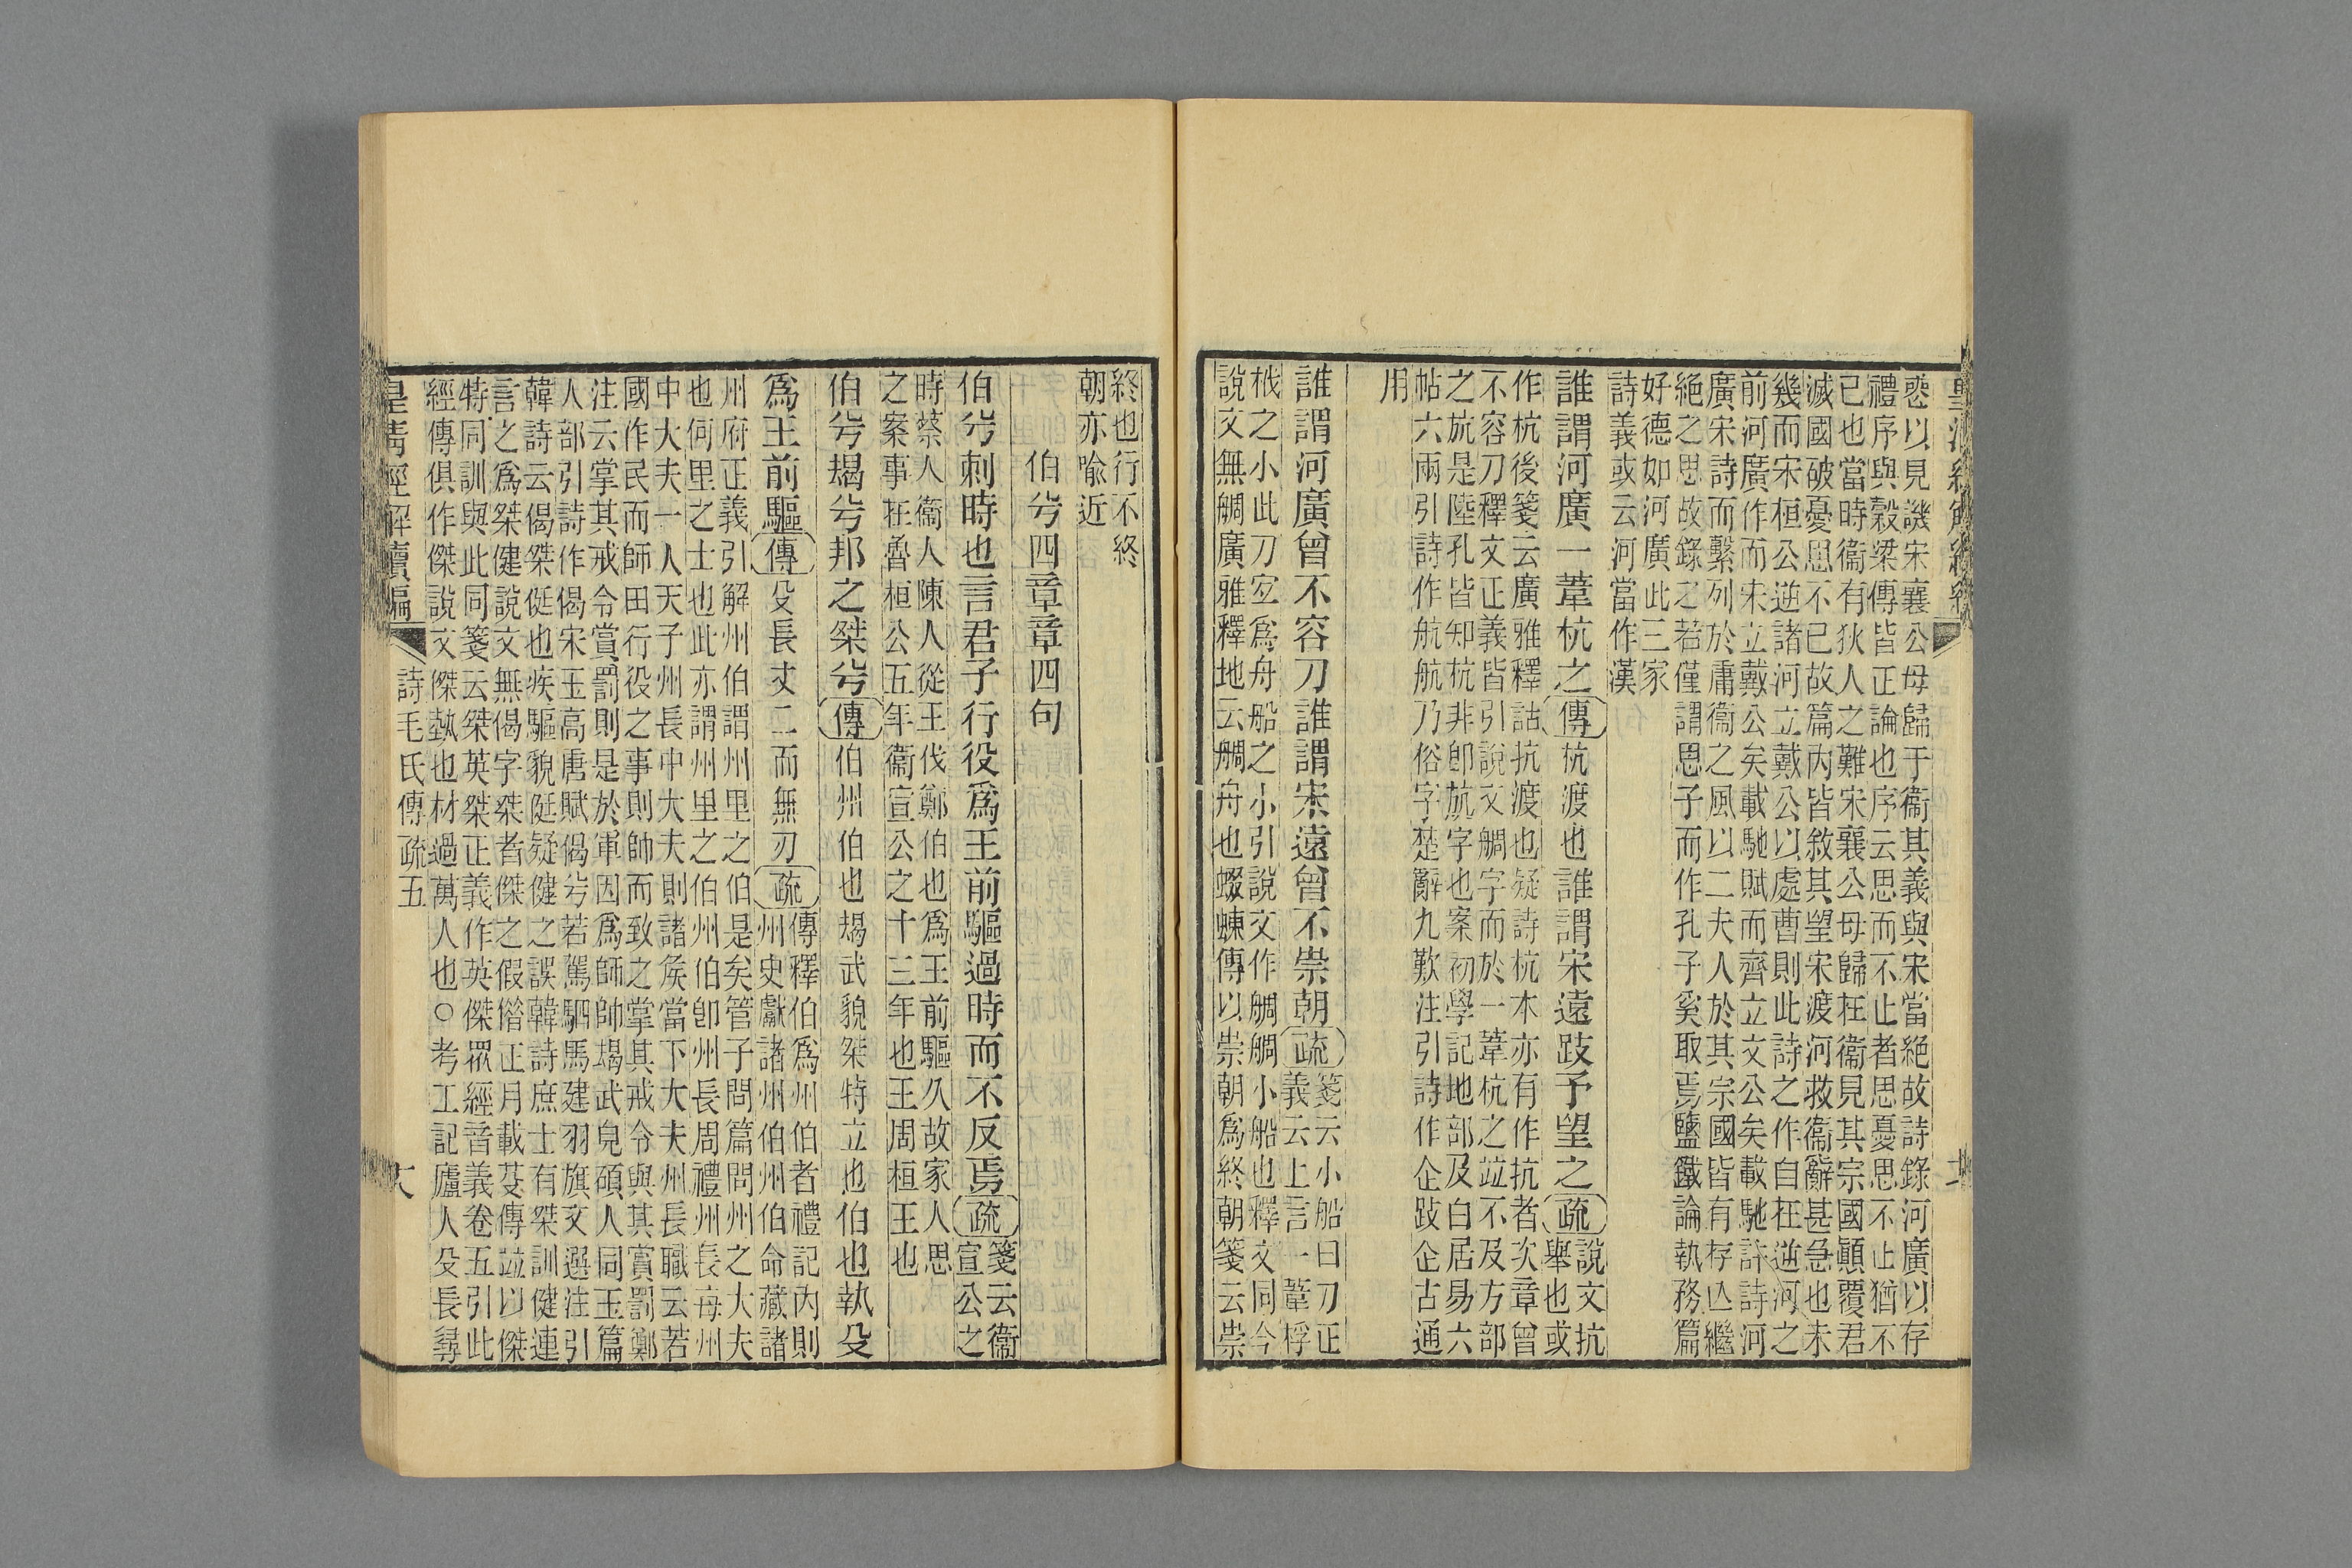 愆以見譏宋襄公母歸于衞其義與宋當絕故詩錄河廣以存
禮序與穀梁傳皆正論也序云思而不止者思憂思不止猶不
已也當時衞有狄人之難宋襄公母歸在衞見其宗國顚覆君
滅國破憂思不已故篇內皆敘其望宋渡河救衞辭甚急也未
幾而宋桓公逆諸河立戴公以處曹則此詩之作自在逆河之
前河廣作而宋立戴公矣載馳賦而齊立文公矣載馳許詩河
廣宋詩而繫列於鄘衞之風以二夫人於其宗國皆有存亾繼
絕之思故錄之若僅謂思子而作孔子奚取焉鹽鐵論執務篇
好德如河廣此三家
詩義或云河當作漢
誰謂河廣一葦杭之傳杭渡也誰謂宋遠跂予望之疏說文抗
舉也或
作杭後箋云廣雅釋詁抗渡也疑詩杭本亦有作抗者次章曾
不容刀釋文正義皆引說文舠字而於一葦杭之竝不及方部
之斻是陸孔皆知抗非卽斻字也案初學記地部及白居易六
帖六兩引詩作航航乃俗字楚辭九歎注引詩作企跂企古通
用
誰謂河廣曾不容刀誰謂宋遠曾不崇朝疏箋云小船曰刀正
義云上言一葦桴
栰之小此刀宐爲舟船之小引說文作舠舠小船也釋文同今
說文無舠廣雅釋地云舠舟也蝃蝀傳以崇朝爲終朝箋云崇
終也行不終
朝亦喻近
伯兮四章章四句
伯兮刺時也言君子行役爲王前驅過時而不反焉疏箋云衞
宣公之
時蔡人衞人陳人從王伐鄭伯也爲王前驅久故家人思
之案事在魯桓公五年衞宣公之十三年也王周桓王也
伯兮朅兮邦之桀兮傳伯州伯也朅武貌桀特立也伯也執殳
爲王前驅傳殳長丈二而無刃疏傳釋伯爲州伯者禮記內則
州史獻諸州伯州伯命藏諸
州府正義引解州伯謂州里之伯是矣管子問篇問州之大夫
也何里之士也此亦謂州里之伯州伯卽州長周禮州長每州
中大夫一人天子州長中大夫則諸矦當下大夫州長職云若
國作民而師田行役之事則帥而致之掌其戒令與其賞罰鄭
注云掌其戒令賞罰則是於軍因爲師帥朅武皃碩人同玉篇
人部引詩作偈宋玉高唐賦偈兮若駕駟馬建羽旗文選注引
韓詩云偈桀侹也疾驅貌侹疑健之誤韓詩庶士有桀訓健連
言之爲桀健說文無偈字桀者傑之假借正月載芟傳竝以傑
特同訓與此同箋云桀英桀正義作英傑眾經音義卷五引此
經傳俱作傑說文傑埶也材過萬人也○考工記廬人殳長尋
皇清經解續編
詩毛氏傳疏五